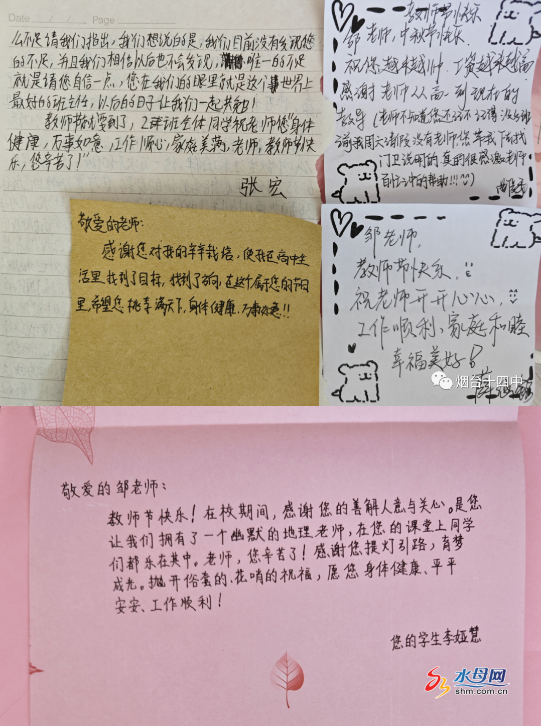 Date / / Page
么不足请我们指出,我们想说的是,我们目前没有发现您
的不足,并且我们相信以后也不会发现,唯一的不足
就是请您自信一点,您在我们的眼里就是这个世界上
最好的班主任,以后的日子让我们一起努力!
教师节就要到了,2班全体同学祝老师您“身体
健康,万事如意,工作顺心,家庭美满,老师,教师节快
乐,您辛苦了!”
张宏
敬爱的老师:
感谢您对我的辛辛栽培,使我在高中生
活里找到了目标,找到了方向,在这个属于您的节日
里,希望您桃李满天下,身体健康,万事如意!!
教师节快乐
邹老师,中秋节快乐
祝您越来越帅,工资越来越高
感谢老师从高一到现在的
教导
邹老师,
教师节快乐
祝老师开开心心,
工作顺利,家庭和睦
幸福美好!
烟台十四中
敬爱的邹老师:
教师节快乐!在校期间,感谢您的善解人意与关心。是您
让我们拥有了一个幽默的地理老师,在您的课堂上同学
们都乐在其中。老师,您辛苦了!感谢您提灯引路,育梦
成光。抛开俗套的、花哨的祝福,愿您身体健康、平平
安安、工作顺利!
您的学生李娅慧
水母网
shm.com.cn